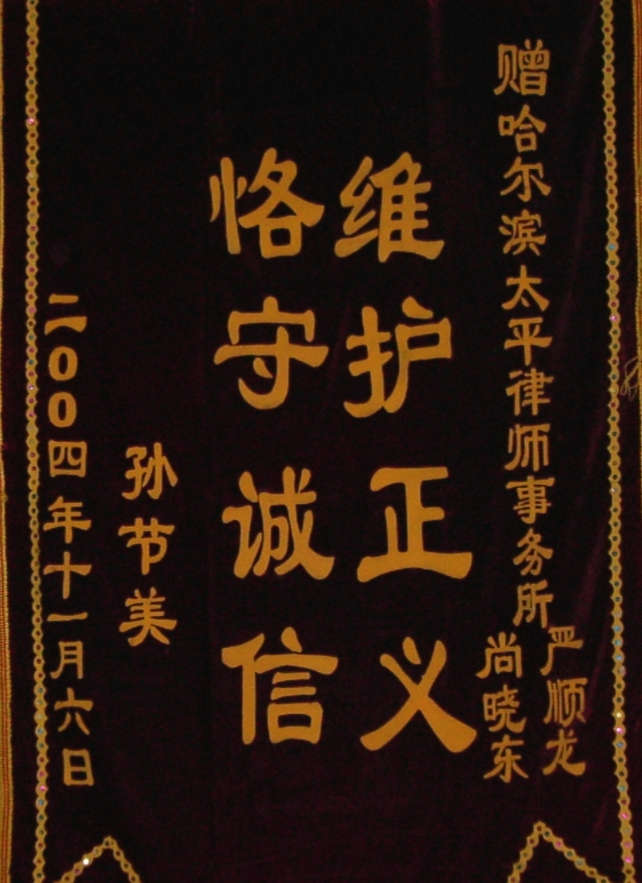 赠哈尔滨太平律师事务所
严顺龙
尚晓东
维护正义
恪守诚信
孙节美
二00四年十一月六日